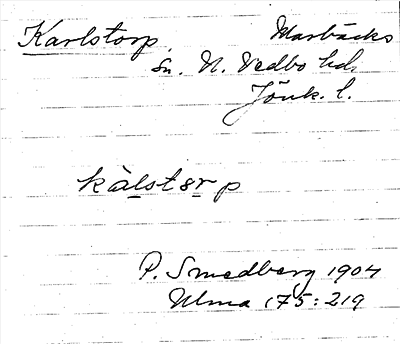 Karlstorp. Marbäcks
sn. N. Vedbo hd.
Jönk. l.
kàlstȣrp
P. Smedberg 1904
Ulma 175:219